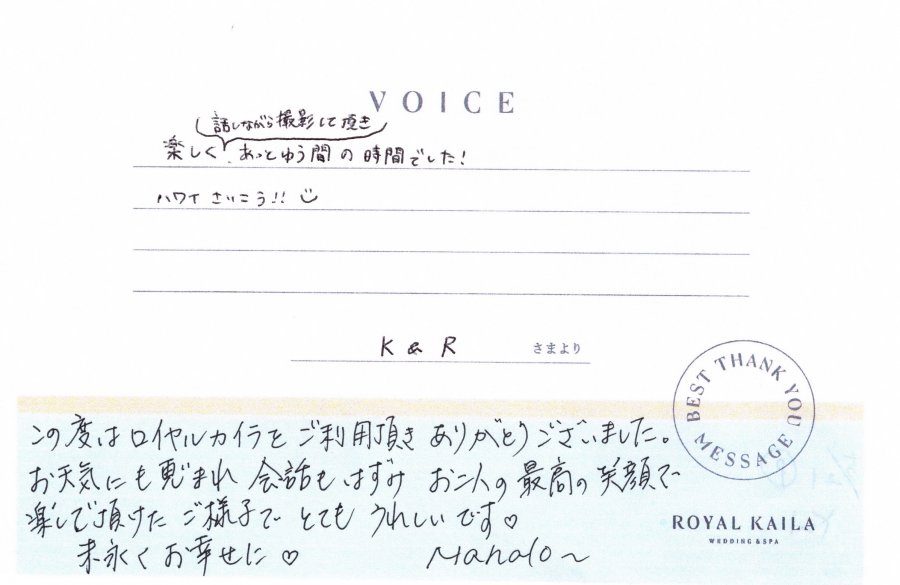 VOICE
話しながら撮影して頂き
楽しく、あっとゆう間の時間でした!
ハワイさいこう!!
K & R さまより
BEST THANK YOU MESSAGE
この度はロイヤルカイラをご利用頂きありがとうございました。
お天気にも恵まれ 会話もはずみ お二人の最高の笑顔で
楽しんで頂けたご様子で とても うれしいです♡
末永くお幸せに♡
ROYAL KAILA
WEDDING & SPA